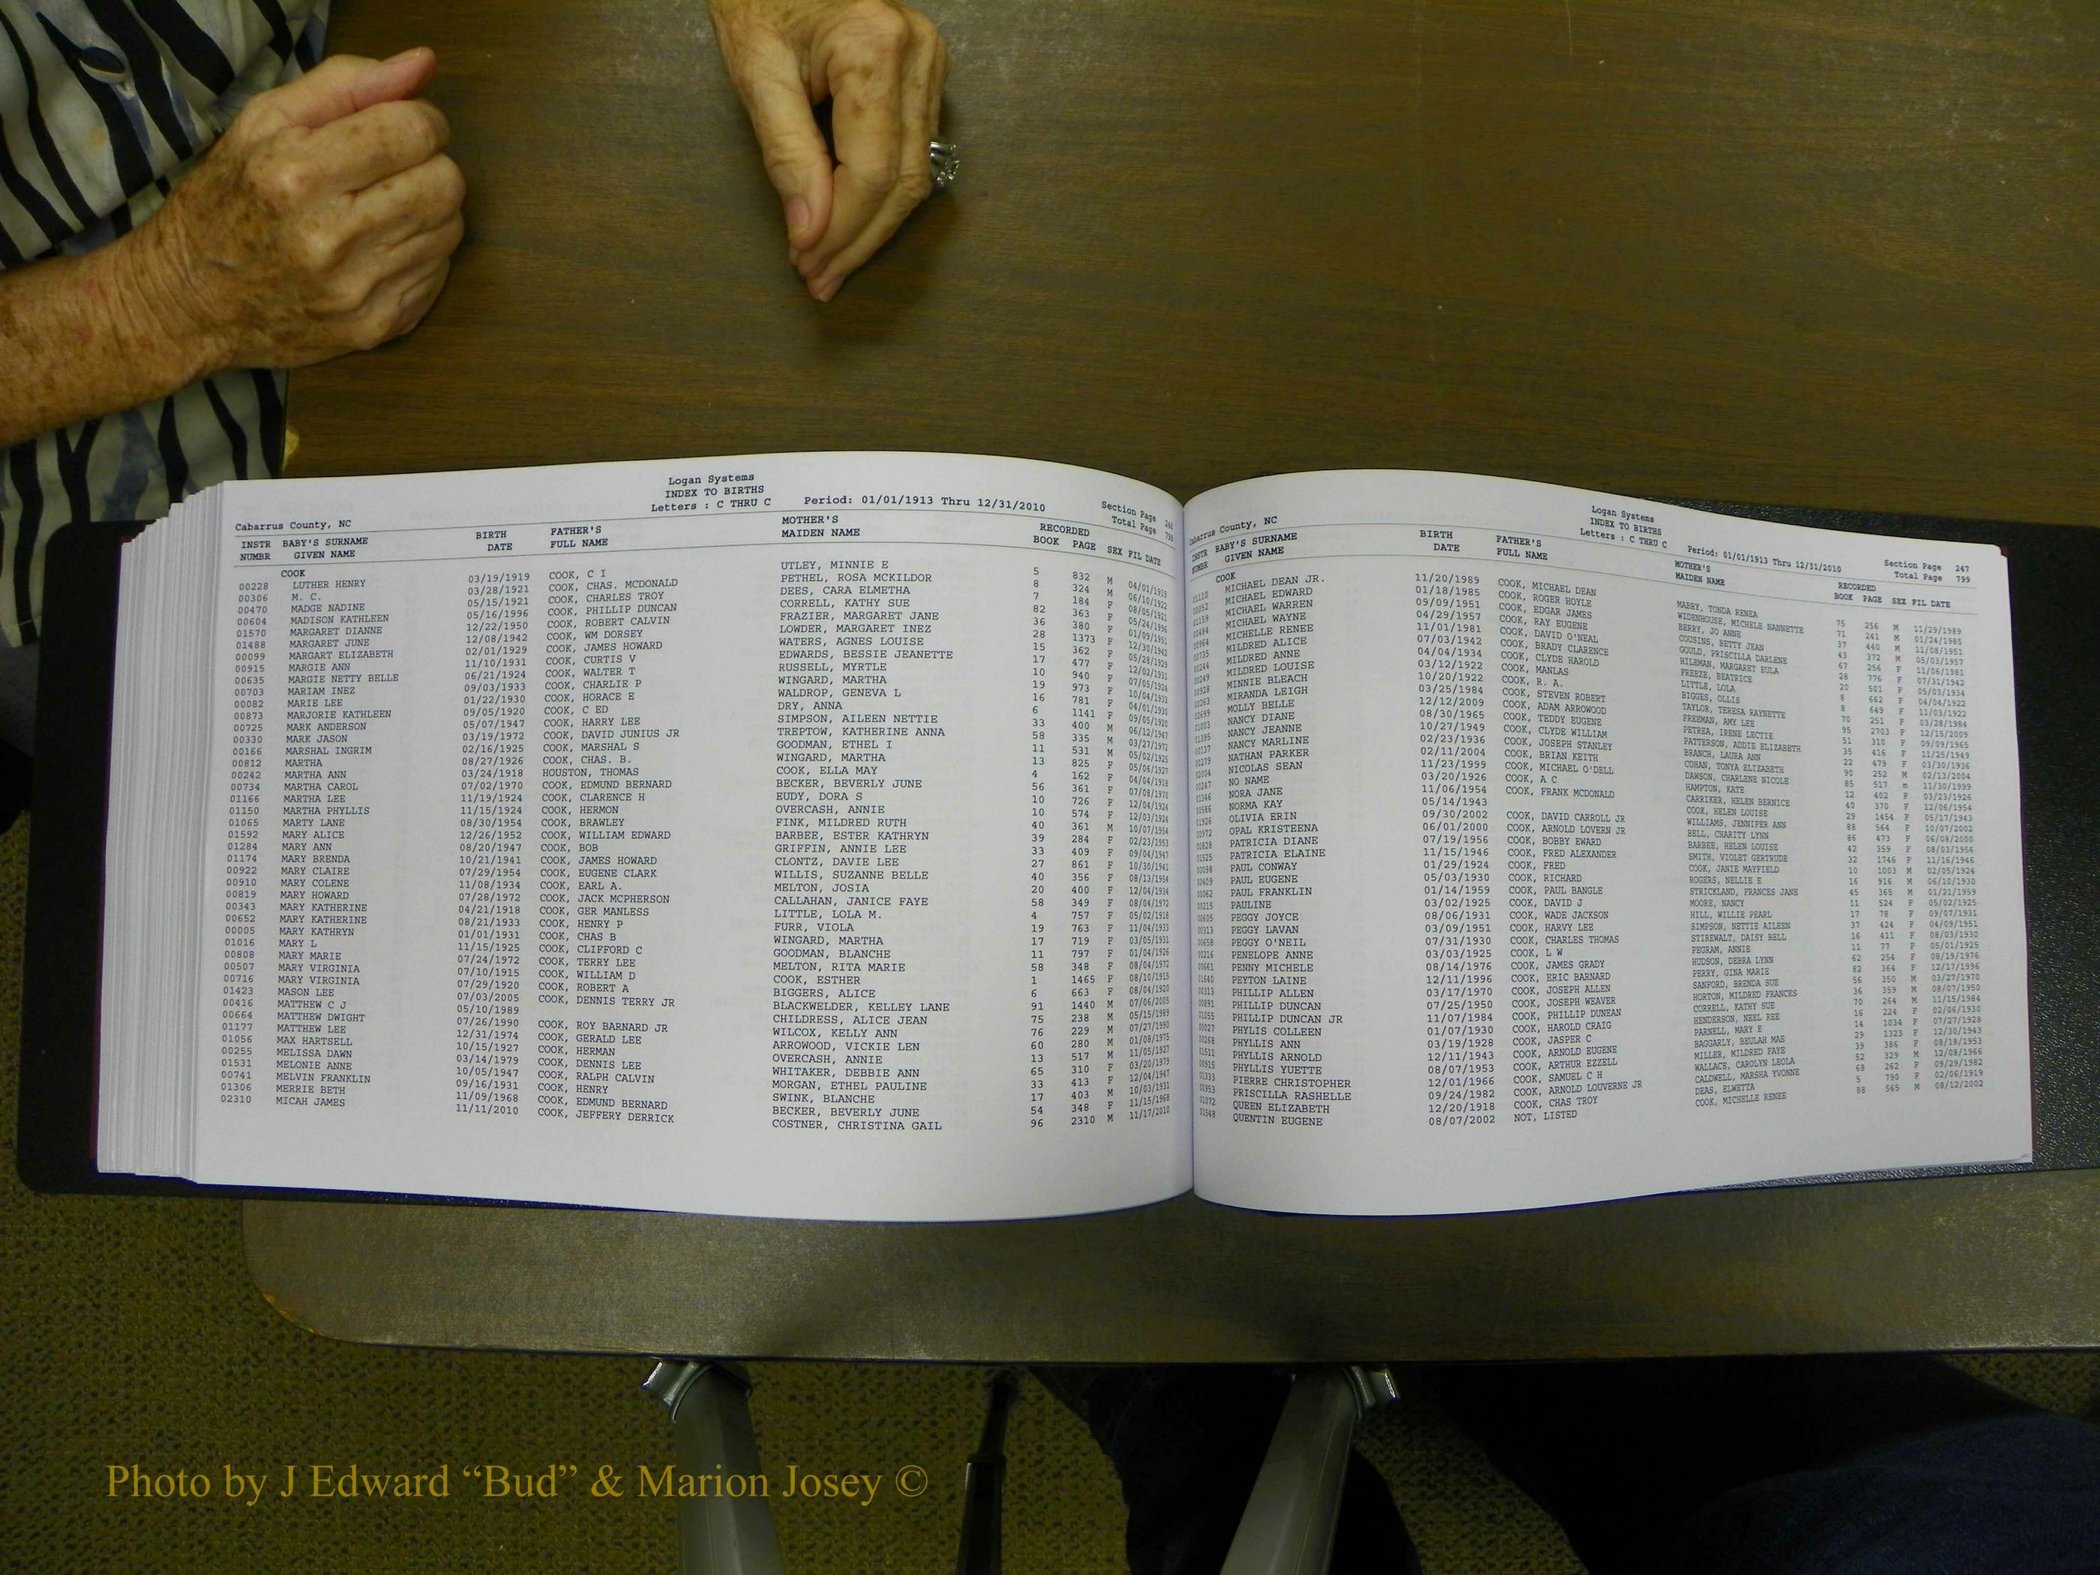 Logan Systems
INDEX TO BIRTHS
Letters : C THRU C Period: 01/01/1913 Thru 12/31/2010
Cabarrus County, NC Section Page 246
Total Page 798
INSTR BABY'S SURNAME BIRTH FATHER'S MOTHER'S RECORDED
NUMBR GIVEN NAME DATE FULL NAME MAIDEN NAME BOOK PAGE SEX FIL DATE
COOK
00228 LUTHER HENRY 03/19/1919 COOK, C I UTLEY, MINNIE E 5 832 M 04/01/1919
00306 M. C. 03/28/1921 COOK, CHAS. MCDONALD PETHEL, ROSA MCKILDOR 8 324 M 06/10/1922
00470 MADGE NADINE 05/15/1921 COOK, CHARLES TROY DEES, CARA ELMETHA 7 184 F 08/05/1921
00604 MADISON KATHLEEN 05/16/1996 COOK, PHILLIP DUNCAN CORRELL, KATHY SUE 82 363 F 05/24/1996
01570 MARGARET DIANNE 12/22/1950 COOK, ROBERT CALVIN FRAZIER, MARGARET JANE 36 380 F 01/09/1951
01488 MARGARET JUNE 12/08/1942 COOK, WM DORSEY LOWDER, MARGARET INEZ 28 1373 F 12/30/1942
00099 MARGART ELIZABETH 02/01/1929 COOK, JAMES HOWARD WATERS, AGNES LOUISE 15 362 F 05/28/1929
00915 MARGIE ANN 11/10/1931 COOK, CURTIS V EDWARDS, BESSIE JEANETTE 17 477 F 12/02/1931
00635 MARGIE NETTY BELLE 06/21/1924 COOK, WALTER T RUSSELL, MYRTLE 10 940 F 07/05/1924
00703 MARIAM INEZ 09/03/1933 COOK, CHARLIE P WINGARD, MARTHA 19 973 F 10/04/1933
00082 MARIE LEE 01/22/1930 COOK, HORACE E WALDROP, GENEVA L 16 781 F 04/01/1930
00873 MARJORIE KATHLEEN 09/05/1920 COOK, C ED DRY, ANNA 6 1141 F 09/05/1920
00725 MARK ANDERSON 05/07/1947 COOK, HARRY LEE SIMPSON, AILEEN NETTIE 33 400 M 06/12/1947
00330 MARK JASON 03/19/1972 COOK, DAVID JUNIUS JR TREPTOW, KATHERINE ANNA 58 335 M 03/27/1972
00166 MARSHAL INGRIM 02/16/1925 COOK, MARSHAL S GOODMAN, ETHEL I 11 531 M 05/02/1925
00812 MARTHA 08/27/1926 COOK, CHAS. B. WINGARD, MARTHA 13 825 F 05/06/1927
00242 MARTHA ANN 03/24/1918 HOUSTON, THOMAS COOK, ELLA MAY 4 162 F 04/04/1918
00734 MARTHA CAROL 07/02/1970 COOK, EDMUND BERNARD BECKER, BEVERLY JUNE 56 361 F 07/08/1970
01166 MARTHA LEE 11/19/1924 COOK, CLARENCE H EUDY, DORA S 10 726 F 12/04/1924
01150 MARTHA PHYLLIS 11/15/1924 COOK, HERMON OVERCASH, ANNIE 10 574 F 12/03/1924
01065 MARTY LANE 08/30/1954 COOK, BRAWLEY FINK, MILDRED RUTH 40 361 M 10/07/1954
01592 MARY ALICE 12/26/1952 COOK, WILLIAM EDWARD BARBEE, ESTER KATHRYN 39 284 F 02/23/1953
01284 MARY ANN 08/20/1947 COOK, BOB GRIFFIN, ANNIE LEE 33 409 F 09/04/1947
01174 MARY BRENDA 10/21/1941 COOK, JAMES HOWARD CLONTZ, DAVIE LEE 27 861 F 10/30/1941
00922 MARY CLAIRE 07/29/1954 COOK, EUGENE CLARK WILLIS, SUZANNE BELLE 40 356 F 08/13/1954
00910 MARY COLENE 11/08/1934 COOK, EARL A. MELTON, JOSIA 20 400 F 12/04/1934
00819 MARY HOWARD 07/28/1972 COOK, JACK MCPHERSON CALLAHAN, JANICE FAYE 58 349 F 08/04/1972
00343 MARY KATHERINE 04/21/1918 COOK, GER MANLESS LITTLE, LOLA M. 4 757 F 05/02/1918
00652 MARY KATHERINE 08/21/1933 COOK, HENRY P FURR, VIOLA 19 763 F 11/04/1933
00005 MARY KATHRYN 01/01/1931 COOK, CHAS B WINGARD, MARTHA 17 719 F 03/05/1931
01016 MARY L 11/15/1925 COOK, CLIFFORD C GOODMAN, BLANCHE 11 797 F 01/04/1926
00808 MARY MARIE 07/24/1972 COOK, TERRY LEE MELTON, RITA MARIE 58 348 F 08/04/1972
00507 MARY VIRGINIA 07/10/1915 COOK, WILLIAM D COOK, ESTHER 1 1465 F 08/10/1915
00716 MARY VIRGINIA 07/29/1920 COOK, ROBERT A BIGGERS, ALICE 6 663 F 08/04/1920
01423 MASON LEE 07/03/2005 COOK, DENNIS TERRY JR BLACKWELDER, KELLEY LANE 91 1440 M 07/06/2005
00416 MATTHEW C J 05/10/1989 CHILDRESS, ALICE JEAN 75 238 M 05/15/1989
00664 MATTHEW DWIGHT 07/26/1990 COOK, ROY BARNARD JR WILCOX, KELLY ANN 76 229 M 07/27/1990
01177 MATTHEW LEE 12/31/1974 COOK, GERALD LEE ARROWOOD, VICKIE LEN 60 280 M 01/08/1975
01056 MAX HARTSELL 10/15/1927 COOK, HERMAN OVERCASH, ANNIE 13 517 M 11/05/1927
00255 MELISSA DAWN 03/14/1979 COOK, DENNIS LEE WHITAKER, DEBBIE ANN 65 310 F 03/20/1979
01531 MELONIE ANNE 10/05/1947 COOK, RALPH CALVIN MORGAN, ETHEL PAULINE 33 413 F 12/04/1947
00741 MELVIN FRANKLIN 09/16/1931 COOK, HENRY SWINK, BLANCHE 17 403 M 10/03/1931
01306 MERRIE BETH 11/09/1968 COOK, EDMUND BERNARD BECKER, BEVERLY JUNE 54 348 F 11/15/1968
02310 MICAH JAMES 11/11/2010 COOK, JEFFERY DERRICK COSTNER, CHRISTINA GAIL 96 2310 M 11/17/2010
Logan Systems
INDEX TO BIRTHS
Letters : C THRU C Period: 01/01/1913 Thru 12/31/2010
Cabarrus County, NC Section Page 247
Total Page 799
INSTR BABY'S SURNAME BIRTH FATHER'S MOTHER'S RECORDED
NUMBR GIVEN NAME DATE FULL NAME MAIDEN NAME BOOK PAGE SEX FIL DATE
COOK
01110 MICHAEL DEAN JR. 11/20/1989 COOK, MICHAEL DEAN MABRY, TONDA RENEA 75 256 M 11/29/1989
00052 MICHAEL EDWARD 01/18/1985 COOK, ROGER HOYLE WIDENHOUSE, MICHELE NANNETTE 71 241 M 01/24/1985
01159 MICHAEL WARREN 09/09/1951 COOK, EDGAR JAMES BERRY, JO ANNE 37 440 M 11/08/1951
00484 MICHAEL WAYNE 04/29/1957 COOK, RAY EUGENE COUSINS, BETTY JEAN 43 372 M 05/03/1957
00964 MICHELLE RENEE 11/01/1981 COOK, DAVID O'NEAL GOULD, PRISCILLA DARLENE 67 256 F 11/06/1981
00735 MILDRED ALICE 07/03/1942 COOK, BRADY CLARENCE HILEMAN, MARGARET EULA 28 776 F 07/31/1942
00244 MILDRED ANNE 04/04/1934 COOK, CLYDE HAROLD FREEZE, BEATRICE 20 501 F 05/03/1934
00249 MILDRED LOUISE 03/12/1922 COOK, MANLAS LITTLE, LOLA 8 662 F 04/04/1922
00928 MINNIE BLEACH 10/20/1922 COOK, R. A. BIGGES, OLLIS 8 649 F 11/03/1922
00263 MIRANDA LEIGH 03/25/1984 COOK, STEVEN ROBERT TAYLOR, TERESA RAYNETTE 70 251 F 03/28/1984
02699 MOLLY BELLE 12/12/2009 COOK, ADAM ARROWOOD FREEMAN, AMY LEE 95 2703 F 12/15/2009
01003 NANCY DIANE 08/30/1965 COOK, TEDDY EUGENE PETREA, IRENE LECTIE 51 310 F 09/09/1965
01395 NANCY JEANNE 10/27/1949 COOK, CLYDE WILLIAM PATTERSON, ADDIE ELIZABETH 35 416 F 11/25/1949
00137 NANCY MARLINE 02/23/1936 COOK, JOSEPH STANLEY BRANCH, LAURA ANN 22 479 F 03/30/1936
00279 NATHAN PARKER 02/11/2004 COOK, BRIAN KEITH COHAN, TONYA ELIZABETH 90 252 M 02/13/2004
02004 NICOLAS SEAN 11/23/1999 COOK, MICHAEL O'DELL DAWSON, CHARLENE NICOLE 85 517 m 11/30/1999
00247 NO NAME 03/20/1926 COOK, A C HAMPTON, KATE 12 402 F 03/23/1926
01346 NORA JANE 11/06/1954 COOK, FRANK MCDONALD CARRIKER, HELEN BERNICE 40 370 F 12/06/1954
00586 NORMA KAY 05/14/1943 COOK, HELEN LOUISE 29 1454 F 05/17/1943
01926 OLIVIA ERIN 09/30/2002 COOK, DAVID CARROLL JR WILLIAMS, JENNIFER ANN 88 564 F 10/07/2002
00972 OPAL KRISTEENA 06/01/2000 COOK, ARNOLD LOVERN JR BELL, CHARITY LYNN 86 473 F 06/08/2000
00828 PATRICIA DIANE 07/19/1956 COOK, BOBBY EWARD BARBEE, HELEN LOUISE 42 359 F 08/03/1956
01525 PATRICIA ELAINE 11/15/1946 COOK, FRED ALEXANDER SMITH, VIOLET GERTRUDE 32 1746 F 11/16/1946
00098 PAUL CONWAY 01/29/1924 COOK, FRED COOK, JANIE MAYFIELD 10 1003 M 02/05/1924
00409 PAUL EUGENE 05/03/1930 COOK, RICHARD ROGERS, NELLIE E 16 916 M 06/10/1930
00062 PAUL FRANKLIN 01/14/1959 COOK, PAUL BANGLE STRICKLAND, FRANCES JANE 45 365 M 01/21/1959
00215 PAULINE 03/02/1925 COOK, DAVID J MOORE, NANCY 11 524 F 05/02/1925
00605 PEGGY JOYCE 08/06/1931 COOK, WADE JACKSON HILL, WILLIE PEARL 17 78 F 09/07/1931
00313 PEGGY LAVAN 03/09/1951 COOK, HARVY LEE SIMPSON, NETTIE AILEEN 37 424 F 04/09/1951
00658 PEGGY O'NEIL 07/31/1930 COOK, CHARLES THOMAS STIREWALT, DAISY BELL 16 411 F 08/03/1930
00216 PENELOPE ANNE 03/03/1925 COOK, L W PEGRAM, ANNIE 11 77 F 05/01/1925
00661 PENNY MICHELE 08/14/1976 COOK, JAMES GRADY HUDSON, DEBRA LYNN 62 254 F 08/19/1976
01640 PEYTON LAINE 12/11/1996 COOK, ERIC BARNARD PERRY, GINA MARIE 82 364 F 12/17/1996
00313 PHILLIP ALLEN 03/17/1970 COOK, JOSEPH ALLEN SANFORD, BRENDA SUE 56 350 M 03/27/1970
00891 PHILLIP DUNCAN 07/25/1950 COOK, JOSEPH WEAVER HORTON, MILDRED FRANCES 36 359 M 08/07/1950
01055 PHILLIP DUNCAN JR 11/07/1984 COOK, PHILLIP DUNEAN CORRELL, KATHY SUE 70 264 M 11/15/1984
00027 PHYLIS COLLEEN 01/07/1930 COOK, HAROLD CRAIG HENDERSON, NEEL REE 16 224 F 02/06/1930
00268 PHYLLIS ANN 03/19/1928 COOK, JASPER C PARNELL, MARY E 14 1034 F 07/27/1928
01511 PHYLLIS ARNOLD 12/11/1943 COOK, ARNOLD EUGENE BAGGARLY, BEULAH MAE 29 1323 F 12/30/1943
00915 PHYLLIS YUETTE 08/07/1953 COOK, ARTHUR EZZELL MILLER, MILDRED FAYE 39 386 F 08/18/1953
01333 PIERRE CHRISTOPHER 12/01/1966 COOK, SAMUEL C H WALLACE, CAROLYN LEOLA 52 329 M 12/08/1966
00953 PRISCILLA RASHELLE 09/24/1982 COOK, ARNOLD LOUVERNE JR CALDWELL, MARSHA YVONNE 68 262 F 09/29/1982
01072 QUEEN ELIZABETH 12/20/1918 COOK, CHAS TROY DEAS, ELWETTA 5 790 F 02/06/1919
01548 QUENTIN EUGENE 08/07/2002 NOT, LISTED COOK, MICHELLE RENEE 88 565 M 08/12/2002
Photo by J Edward “Bud” & Marion Josey ©